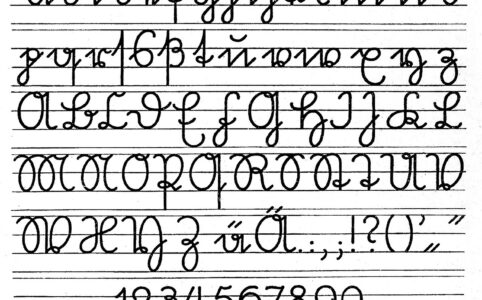 p q r ſ s ß t u v w x y z
A B C D E F G H I J K L
M N O P Q R S St T U V
W X Y Z ü Ä . : , ; ! ? ( ) ’ „ “
1234567890